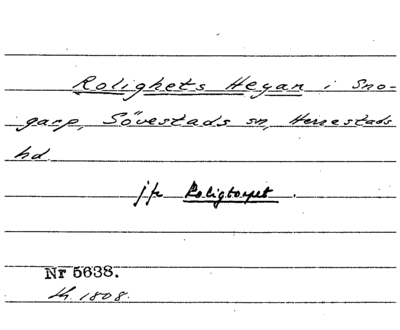 Rolighets Hegan i Sno-
garp, Sövestads sn, Herrestads
hd.
jfr Roligtorpet.
Nr 5638.
Kh. 1808.